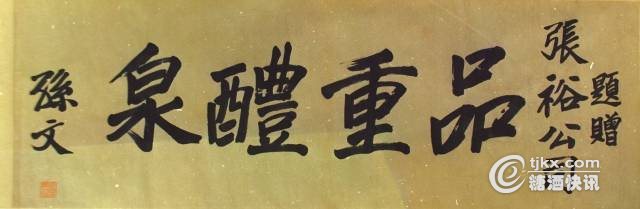 題贈
張裕公司
品重醴泉
孫文
tjkx.com
糖酒快讯